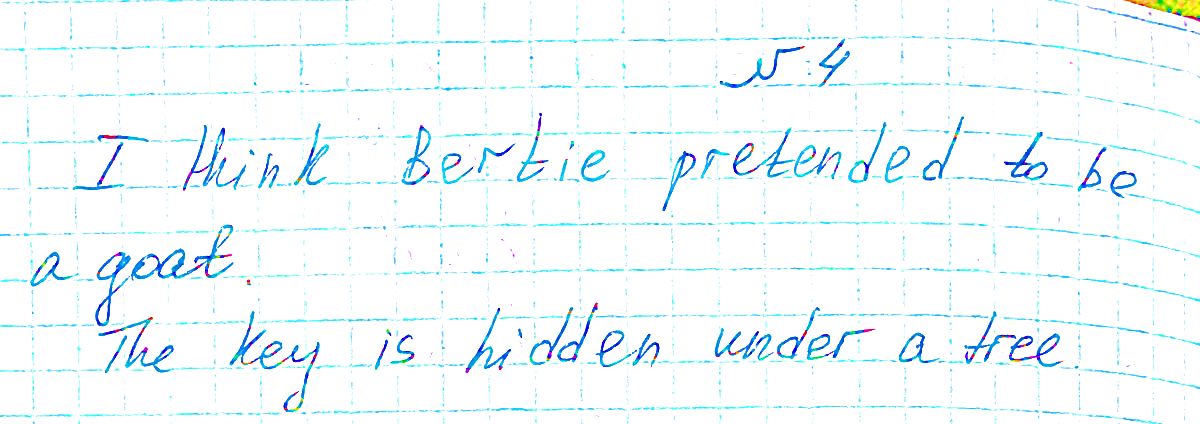 № 4
I think Bertie pretended to be
a goat.
The key is hidden under a tree.